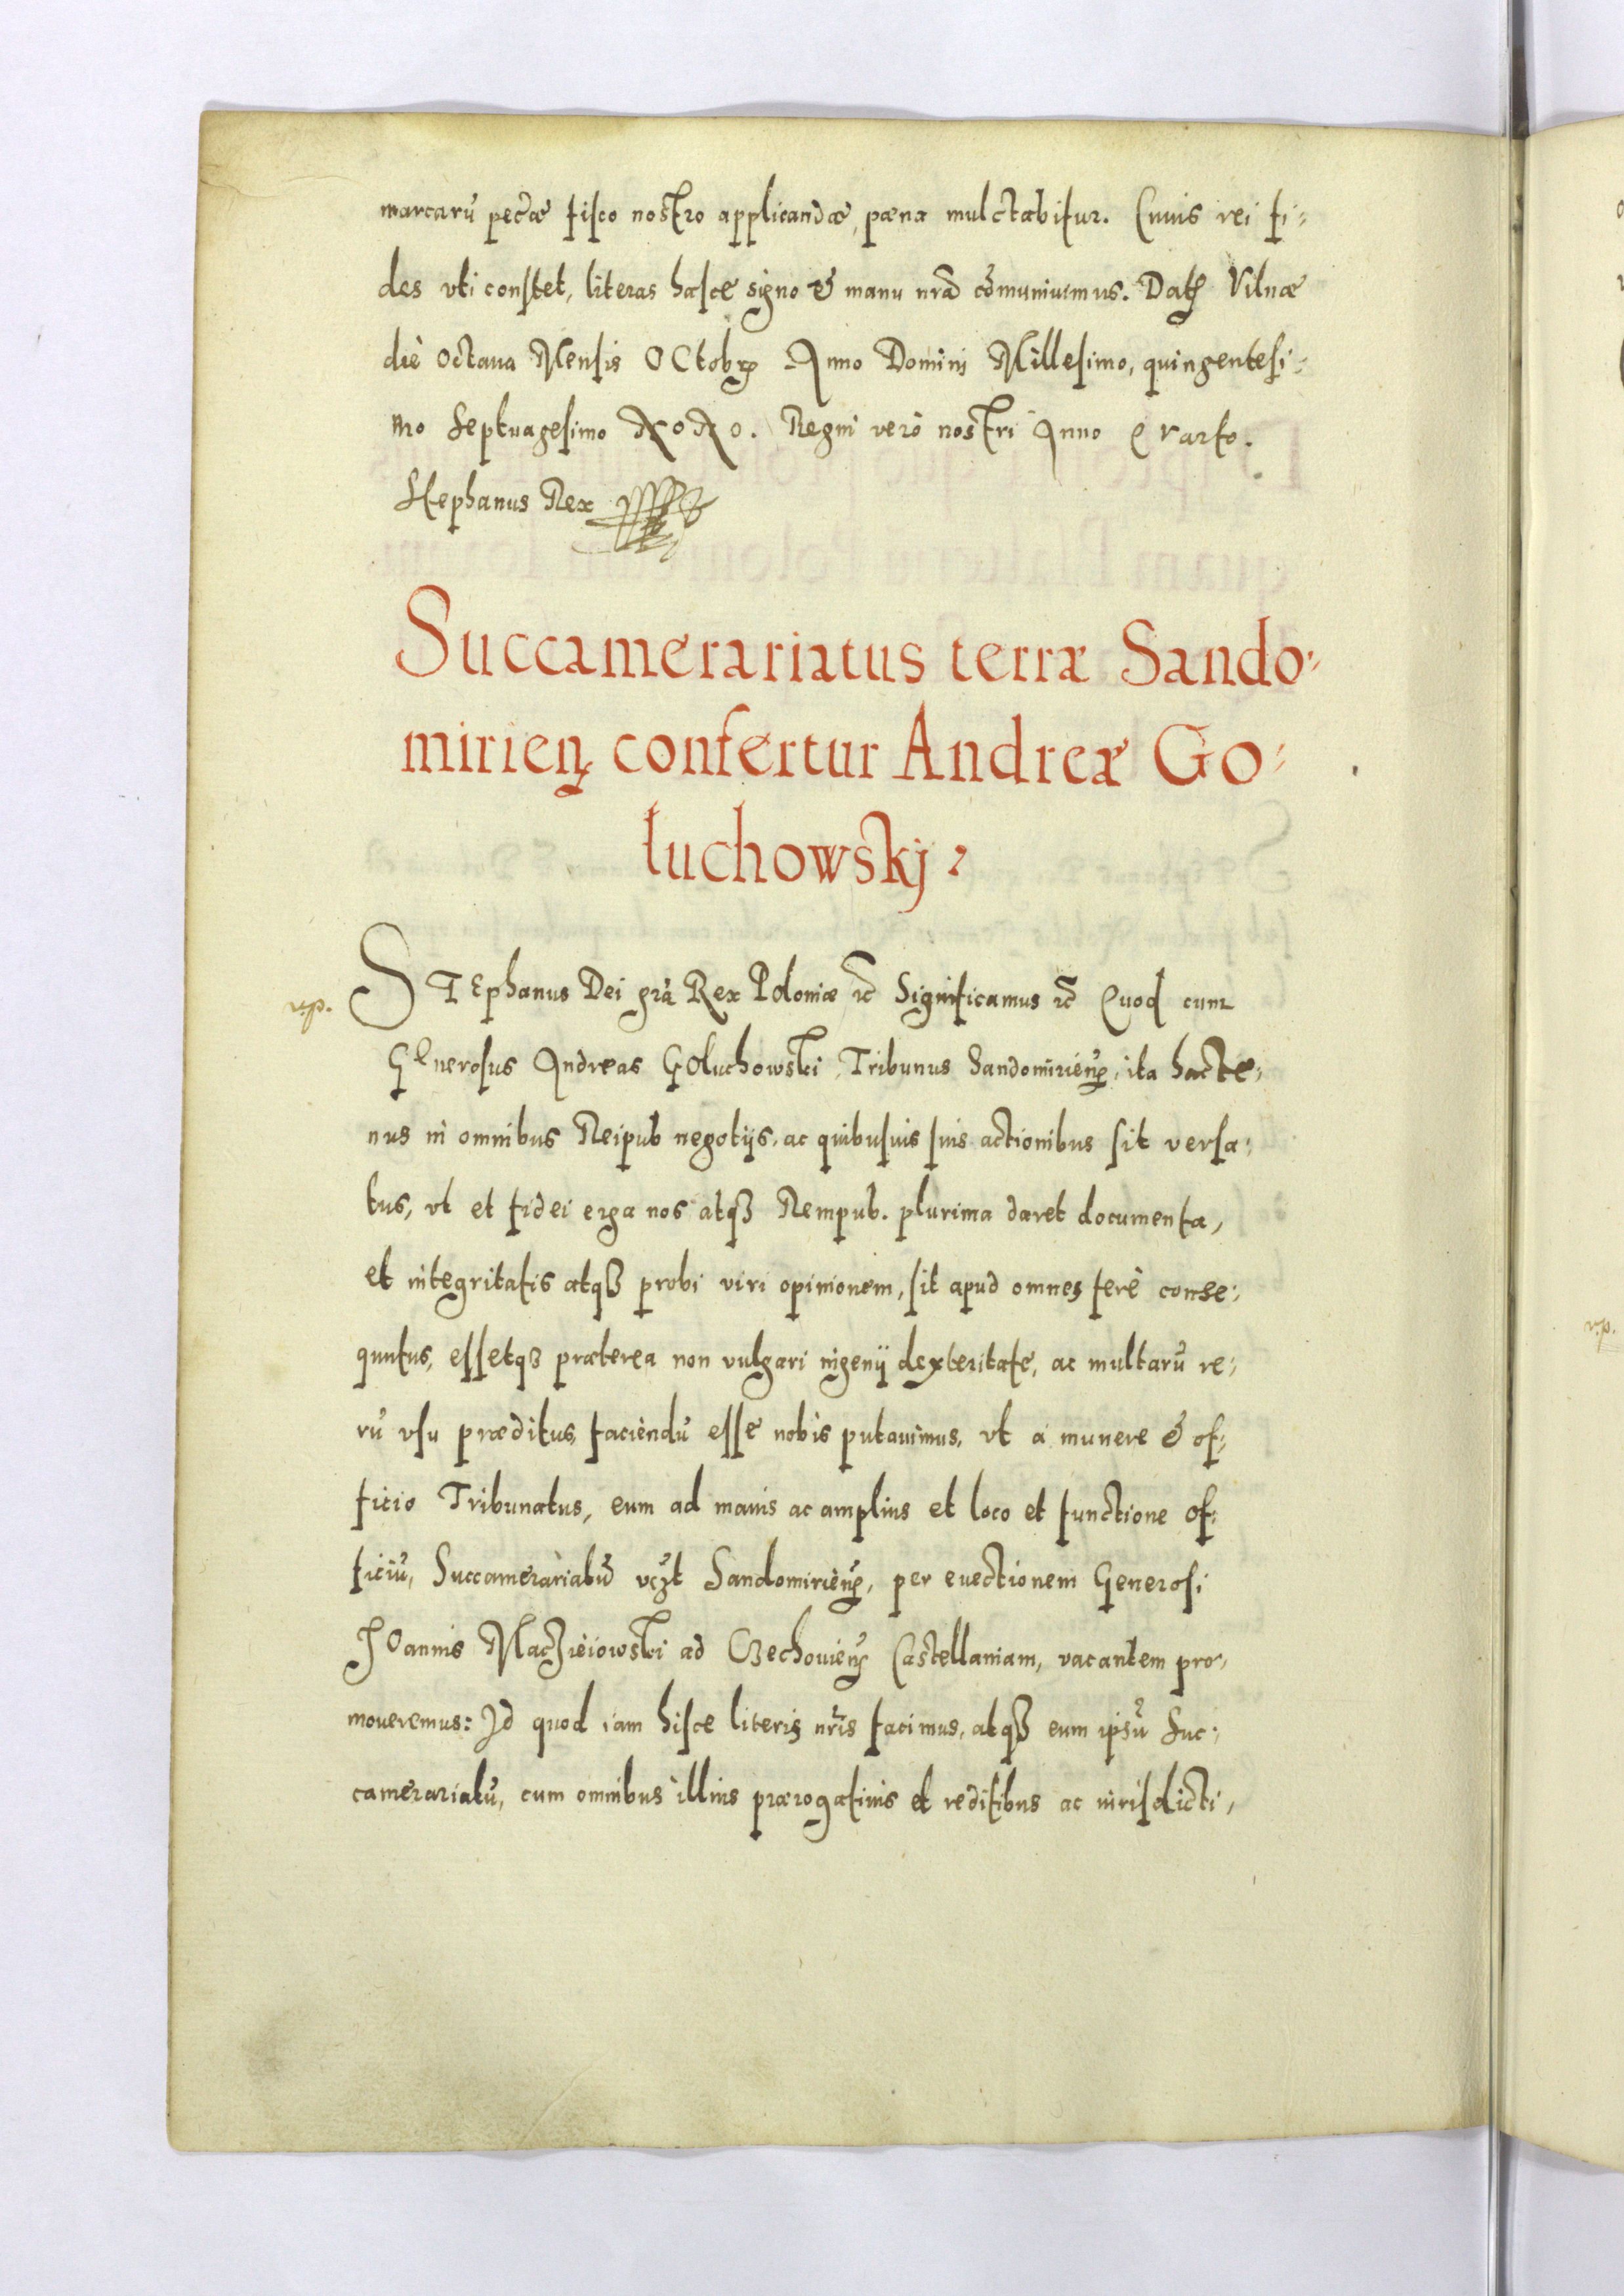 marcarũ pecũæ fisco nostro applicandæ, pæna mulctabitur. Cuius rei fi:
des vti constet, literas hasce signo & manu nrã cõmuniuimus. Datȩ Vilnæ
die Octaua Mensis OCtobrȩ Anno Domini Millesimo, quingentesi:
mo Septuagesimo NoNo. Regni verò nostri Anno Quarto.
Stephanus Rex
Succamerariatus terræ Sando:
mirienȩ confertur Andreæ Go:
luchowskj.
v.p.
STEphanus Dei grã Rex Poloniæ rc̃ Significamus rc̃ Quod cum
Generosus Andreas GOluchowski Tribunus Sandomirienȩ, ita hacte:
nus in omnibus Reipub negotijs, ac quibusuis suis actionibus sit versa:
tus, vt et fidei erga nos atqȝ Rempub. plurima daret documenta,
et integritatis atqȝ probi viri opinionem, sit apud omnes ferè conse:
quutus, essetqȝ præterea non vulgari ingenij dexteritate, ac multarũ re:
rũ vsu præditus, faciendũ esse nobis putauimus, vt á munere & of:
ficio Tribunatus, eum ad maius ac amplius et loco et functione of:
ficiũ, Succamerariatũ vcȝt Sandomirienȩ, per euectionem Generosi
IOannis Maczieiowski ad Czechouienȩ Castellaniam, vacantem pro:
moueremus: Id quod iam hisce literis nr̃is facimus, atqȝ eum ipsũ Suc:
camerariatũ, cum omnibus illius prærogatiuis et reditibus ac iurisdicti,
v.p.